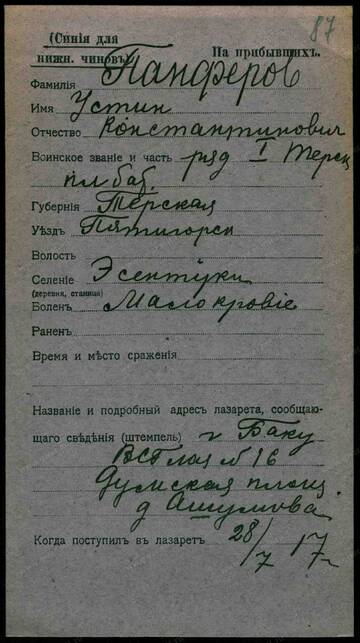 87
(Синія для
нижн. чиновъ)
На прибывшихъ.
Фамилія Панферов
Имя Устин
Отчество Константинович
Воинское званіе и часть ряд I Терск
пл баб.
Губернія Терская
Уѣздъ Пятигорск
Волость
Селеніе Эсентуки
(деревня, станица)
Боленъ Малокровіе
Раненъ
Время и мѣсто сраженія
Названіе и подробный адресъ лазарета, сообщаю-
щаго свѣдѣнія (штемпель) г Баку
ВСГ лаз № 16
Думская площ
д Ашумова
Когда поступилъ въ лазаретъ 28/7 17 г